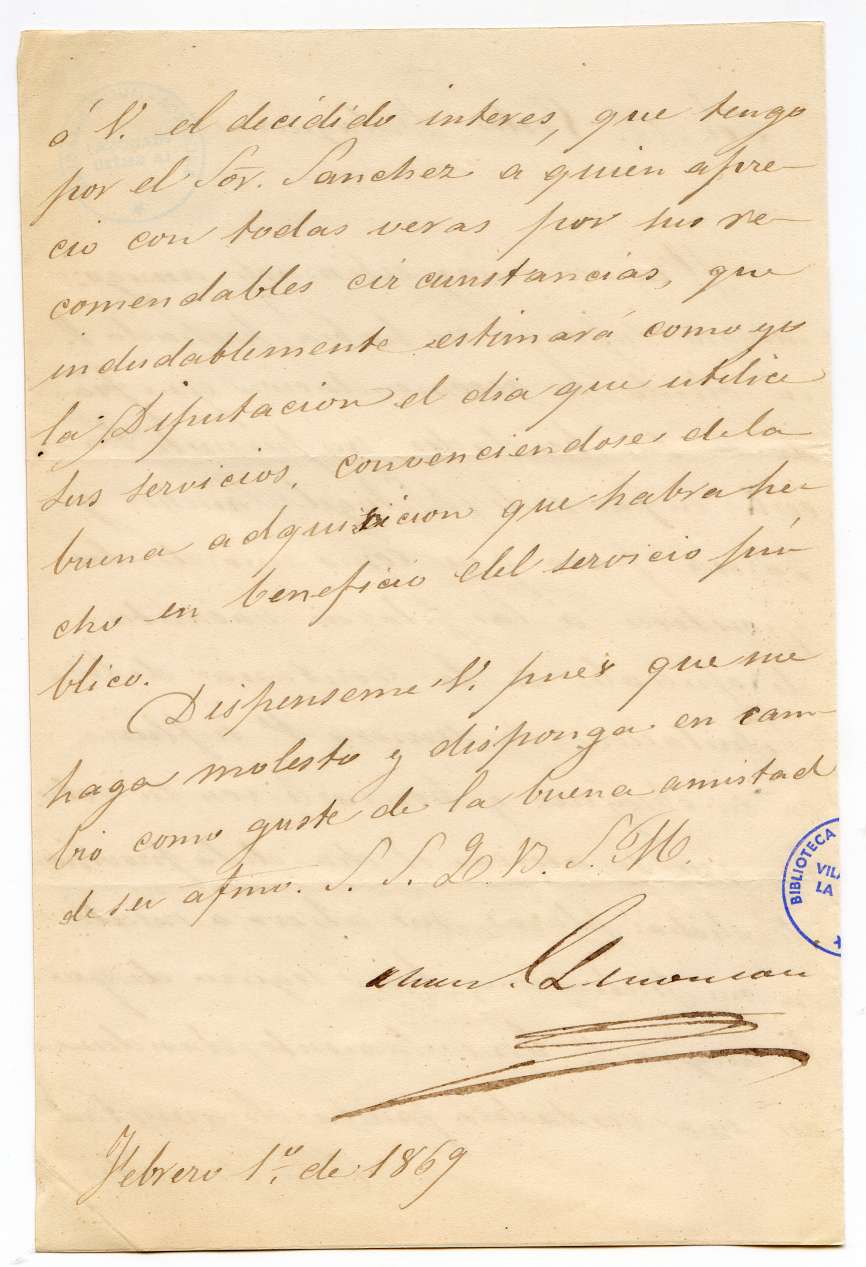 á V. el decidido interes, que tengo
por el Sor. Sanchez á quien apre-
cio con todas veras por sus re-
comendables circunstancias, que
indudablemente estimará como yo
la Diputacion el dia que utilice
sus servicios, convenciendose de la
buena adquisicion que habra he-
cho en beneficio del servicio pú-
blico.
Dispenseme V. pues que me
haga molesto y disponga en cam-
bio como guste de la buena amistad
de su afmo. S. S. Q. B. S. M.
Febrero 1º. de 1869
BIBLIOTECA
VILA
LA